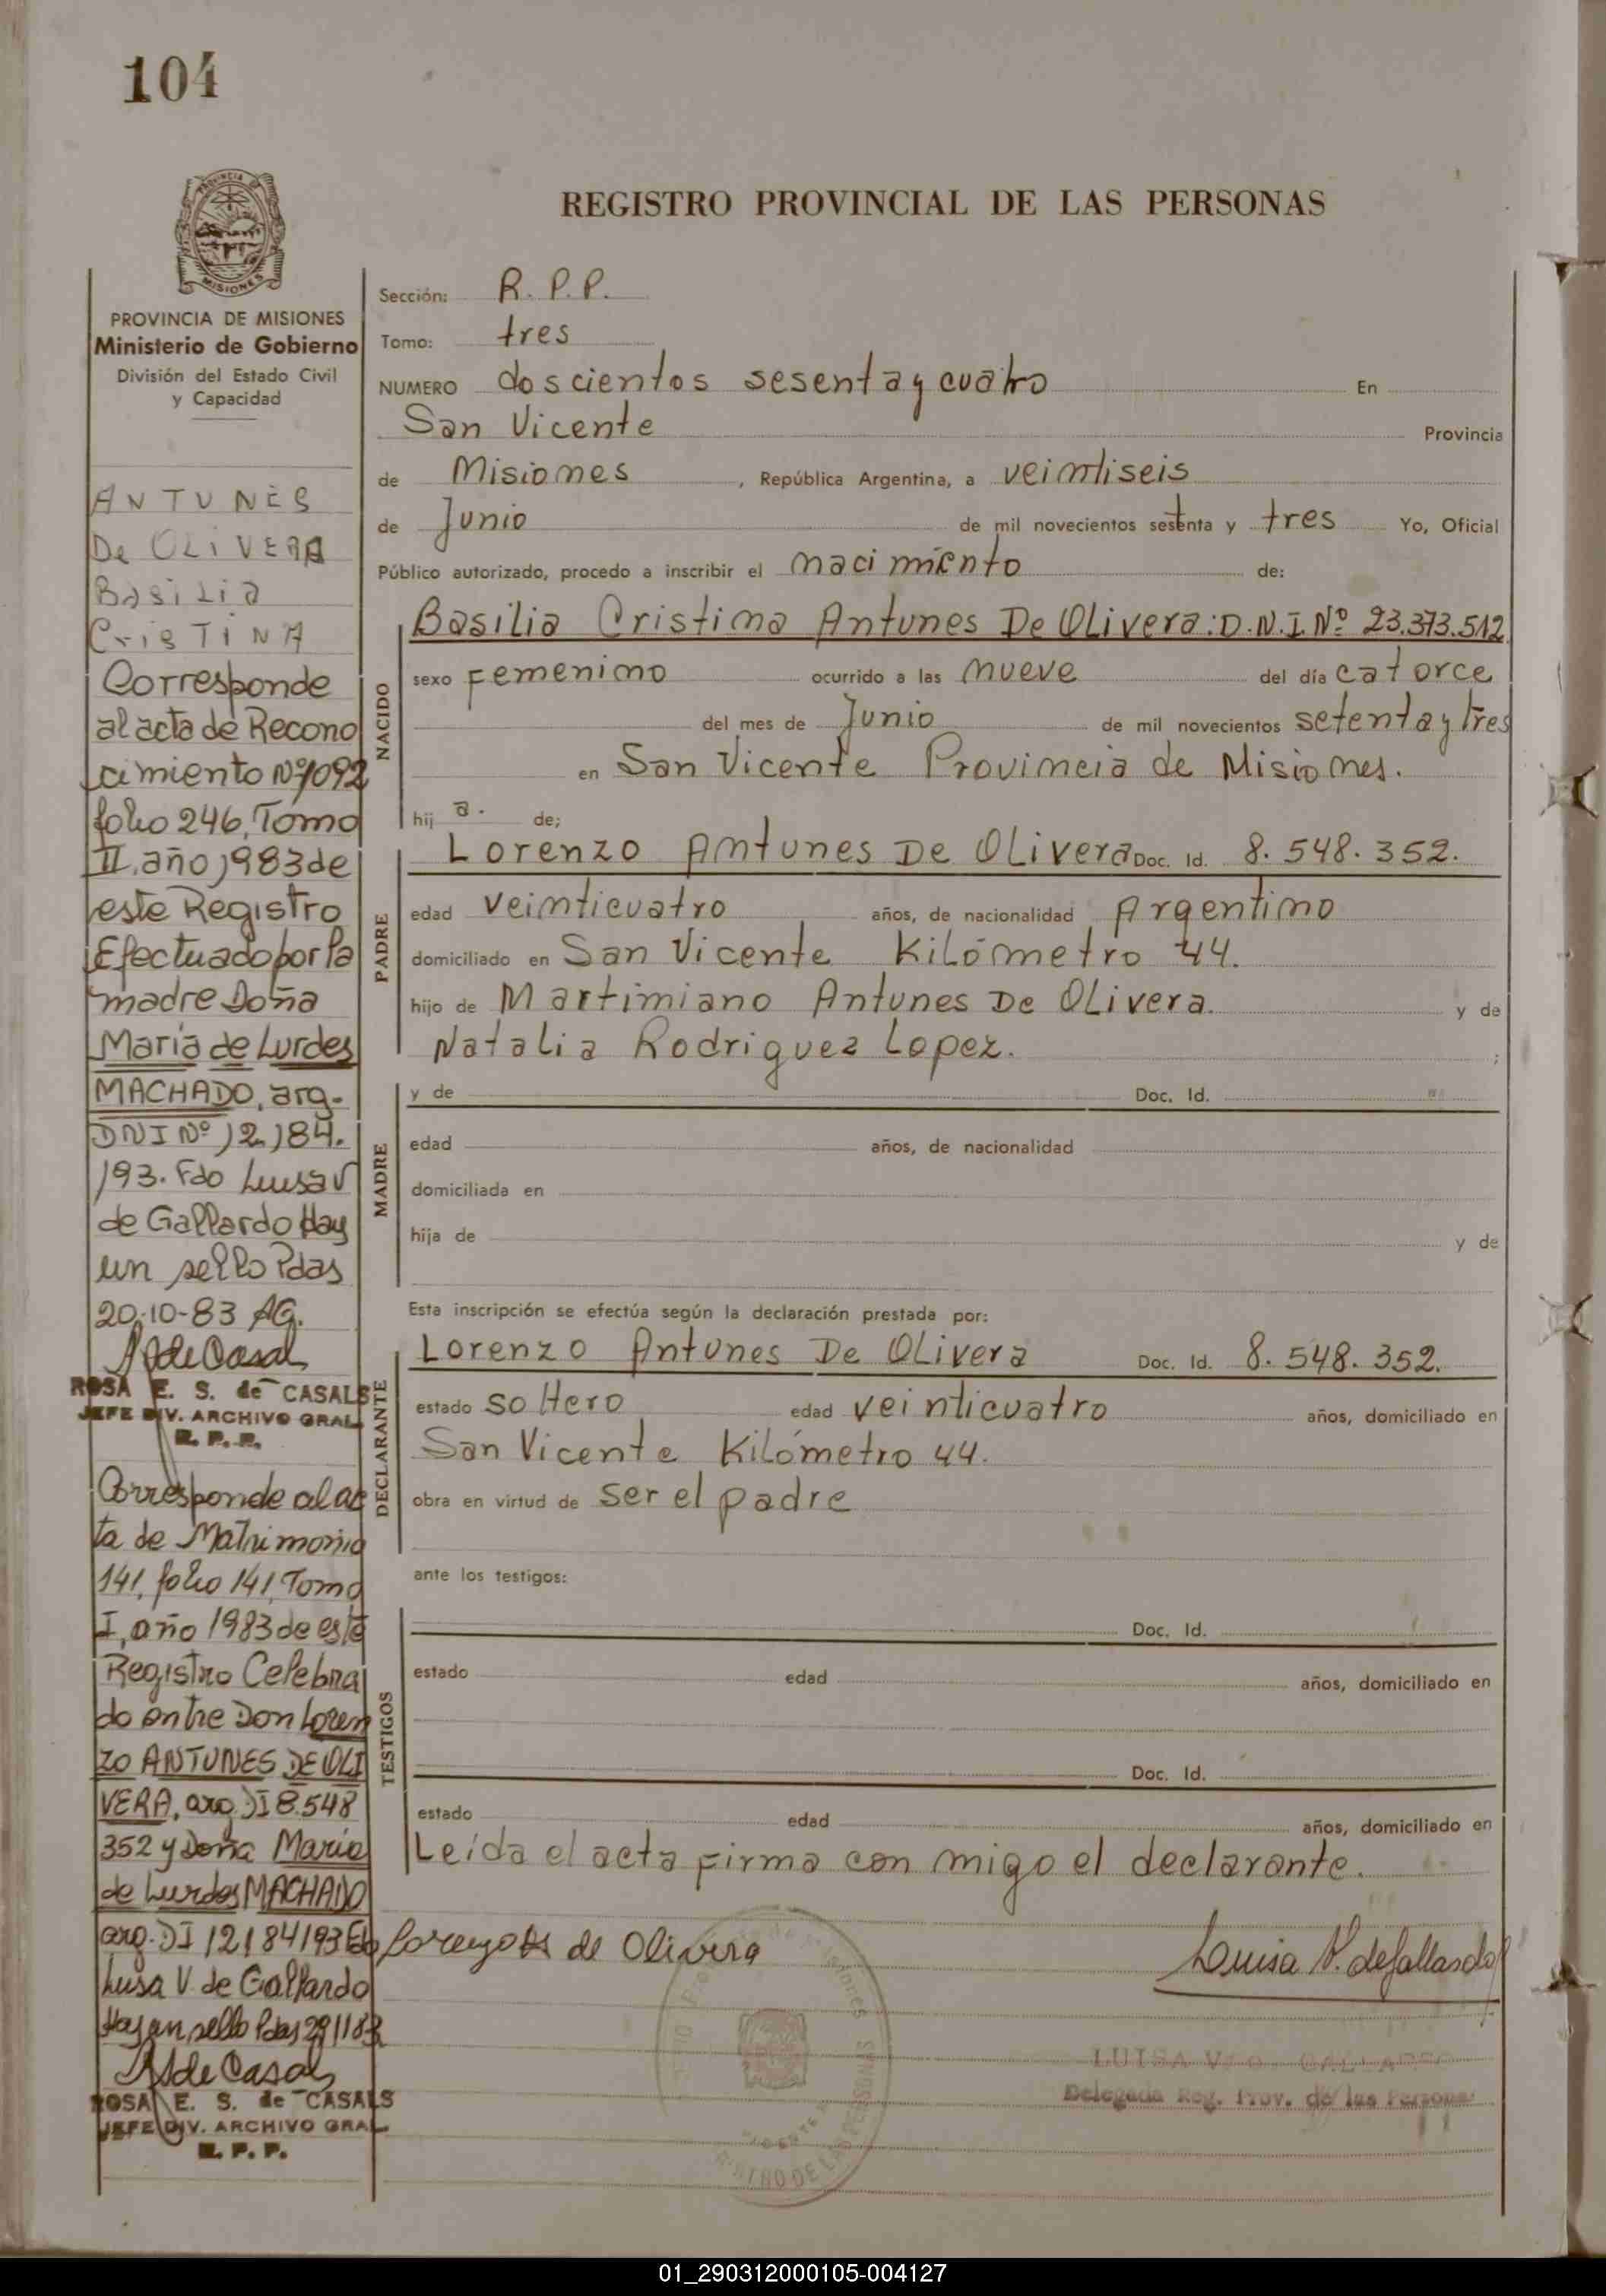 104
PROVINCIA
MISIONES
PROVINCIA DE MISIONES
Ministerio de Gobierno
División del Estado Civil
y Capacidad
ANTUNES
De OLIVERA
Basilia
CrisTINA
Corresponde
al acta de Recono
cimiento Nº 1092
folio 246, Tomo
II, año 1983 de
este Registro
Efectuado por la
madre Doña
María de Lurdes
MACHADO, arg-
DNI Nº 12.184.
193. Fdo Luisa V
de Gallardo Hay
un sello Pdas
20-10-83 AG.
ROSA E. S. de CASALS
JEFE DIV. ARCHIVO GRAL
R. P. P.
Corresponde al ac
ta de Matrimonio
141, folio 141, Tomo
I, año 1983 de este
Registro Celebra
do entre Don Loren
zo ANTUNES DE OLI
VERA, arg. DI 8.548
352 y Doña María
de Lurdes MACHADO
arg. DI 12184193 Fdo
Luisa V. de Gallardo
Hay un sello Pdas
ROSA E. S. de CASALS
JEFE DIV. ARCHIVO GRAL
R. P. P.
REGISTRO PROVINCIAL DE LAS PERSONAS
Sección: R. P. P.
Tomo: tres
NUMERO doscientos sesenta y cuatro En
San Vicente Provincia
de Misiones, República Argentina, a veintiseis
de Junio de mil novecientos setenta y tres Yo, Oficial
Público autorizado, procedo a inscribir el nacimiento de:
NACIDO
Basilia Cristina Antunes De Olivera: D.N.I. Nº 23.373.512
sexo Femenino ocurrido a las nueve del día catorce
del mes de Junio de mil novecientos setenta y tres
en San Vicente Provincia de Misiones.
hij a. de;
PADRE
Lorenzo Antunes De Olivera Doc. Id. 8.548.352.
edad veinticuatro años, de nacionalidad Argentino
domiciliado en San Vicente Kilómetro 44.
hijo de Martimiano Antunes De Olivera. y de
Natalia Rodriguez Lopez. ;
MADRE
y de Doc. Id.
edad años, de nacionalidad
domiciliada en
hija de y de
Esta inscripción se efectúa según la declaración prestada por:
DECLARANTE
Lorenzo Antunes De Olivera Doc. Id. 8.548.352.
estado soltero edad veinticuatro años, domiciliado en
San Vicente Kilómetro 44.
obra en virtud de ser el padre
ante los testigos:
TESTIGOS
Doc. Id.
estado edad años, domiciliado en
Doc. Id.
estado edad años, domiciliado en
Leída el acta firma con migo el declarante.
Lorenzo de Olivera
Luisa V. de Gallardo
LUISA V. GALLARDO
Delegada Reg. Prov. de las Personas
01_290312000105-004127